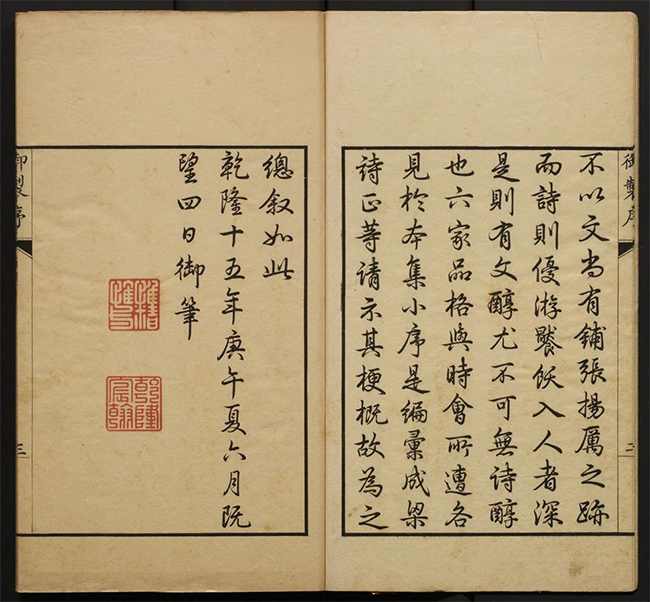 御製序
二
不以文尚有鋪張揚厲之跡
而詩則優游饜飫入人者深
是則有文醇尤不可無詩醇
也六家品格與時會所遭各
見於本集小序是編彙成梁
詩正等請示其梗概故為之
總敘如此
乾隆十五年庚午夏六月既
望四日御筆
乾隆
宸翰
御製序
三